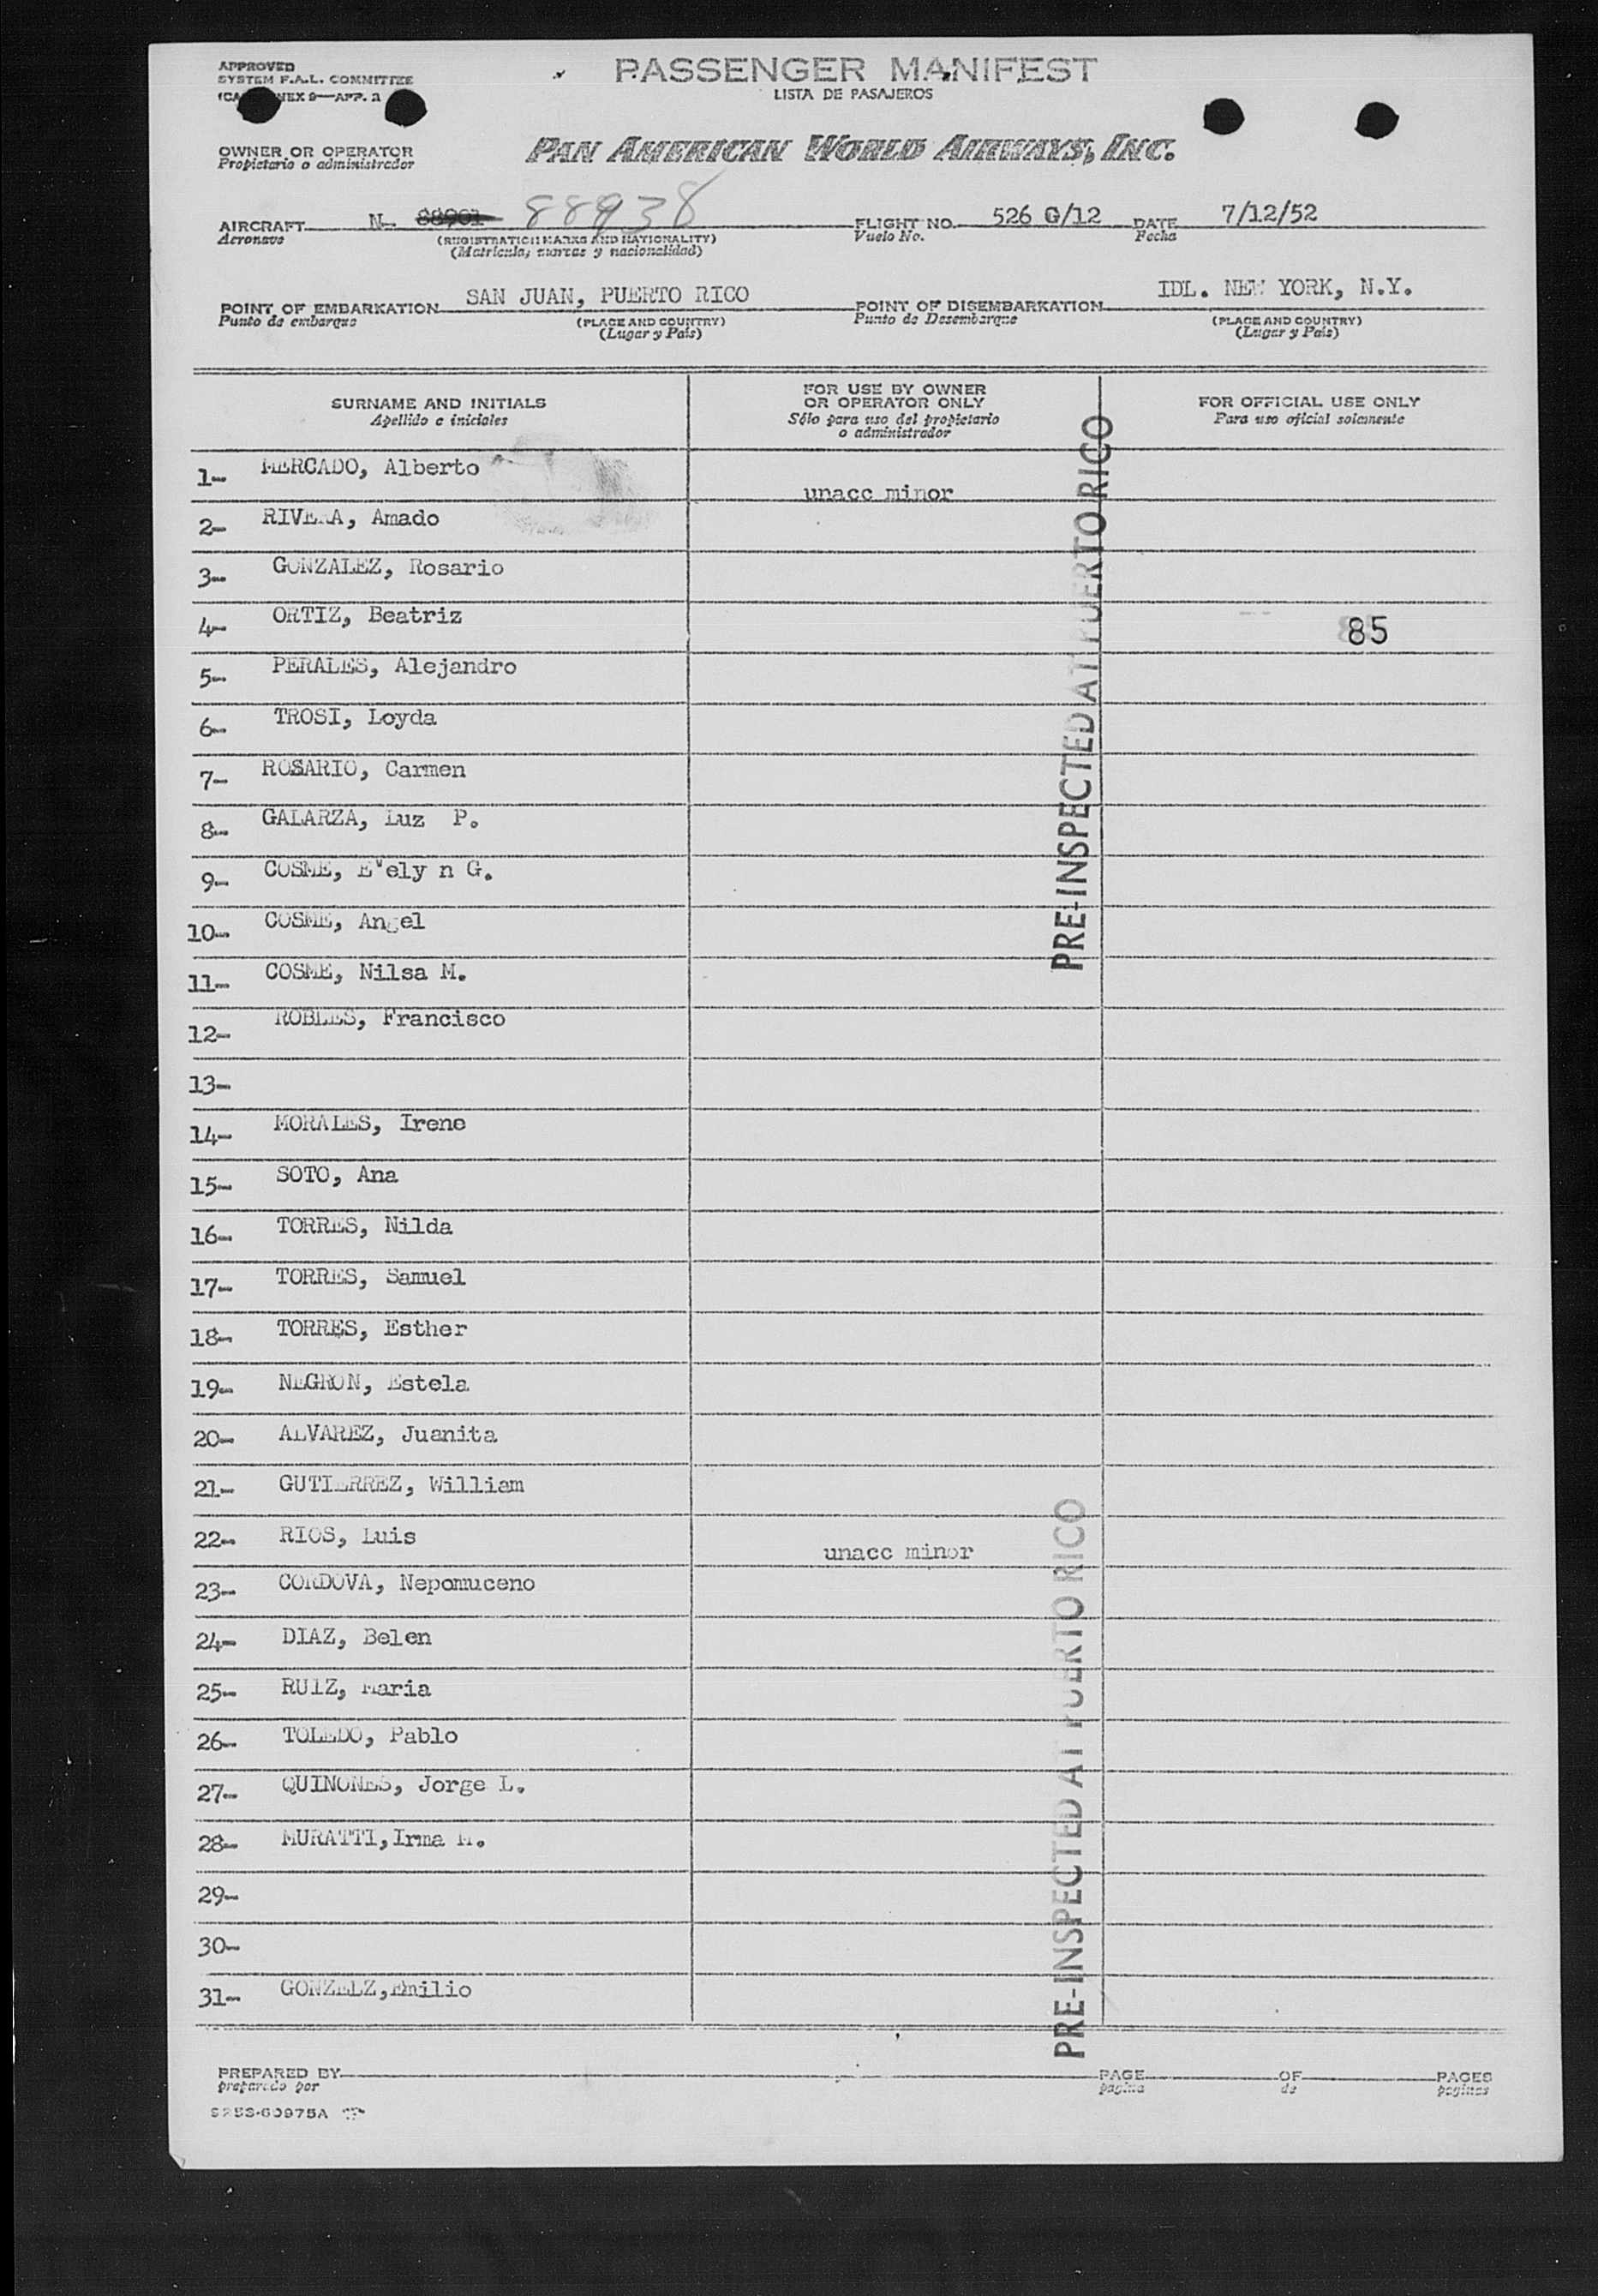 APPROVED
SYSTEM F.A.L. COMMITTEE
ANNEX 9—APP. 2
PASSENGER MANIFEST
LISTA DE PASAJEROS
OWNER OR OPERATOR
Propietario o administrador
PAN AMERICAN WORLD AIRWAYS, INC.
AIRCRAFT N- 88901 88938 FLIGHT NO. 526 G/12 DATE 7/12/52
Aeronave (REGISTRATION MARKS AND NATIONALITY) Vuelo No. Fecha
(Matrícula, marcas y nacionalidad)
POINT OF EMBARKATION SAN JUAN, PUERTO RICO POINT OF DISEMBARKATION IDL. NEW YORK, N.Y.
Punto de embarque (PLACE AND COUNTRY) Punto de Desembarque (PLACE AND COUNTRY)
(Lugar y País) (Lugar y País)
SURNAME AND INITIALS
Apellido e iniciales
FOR USE BY OWNER
OR OPERATOR ONLY
Sólo para uso del propietario
o administrador
FOR OFFICIAL USE ONLY
Para uso oficial solamente
1- MERCADO, Alberto unacc minor
2- RIVERA, Amado
3- GONZALEZ, Rosario
4- ORTIZ, Beatriz 85
5- PERALES, Alejandro
6- TROSI, Loyda
7- ROSARIO, Carmen
8- GALARZA, Luz P.
9- COSME, Evely n G.
10- COSME, Angel
11- COSME, Nilsa M.
12- ROBLES, Francisco
13-
14- MORALES, Irene
15- SOTO, Ana
16- TORRES, Nilda
17- TORRES, Samuel
18- TORRES, Esther
19- NEGRON, Estela
20- ALVAREZ, Juanita
21- GUTIERREZ, William
22- RIOS, Luis unacc minor
23- CORDOVA, Nepomuceno
24- DIAZ, Belen
25- RUIZ, Maria
26- TOLEDO, Pablo
27- QUINONES, Jorge L.
28- MURATTI,Irma M.
29-
30-
31- GONZELZ,Emilio
PRE-INSPECTED AT PUERTO RICO
PRE-INSPECTED AT PUERTO RICO
PREPARED BY PAGE OF PAGES
preparado por pagina de paginas